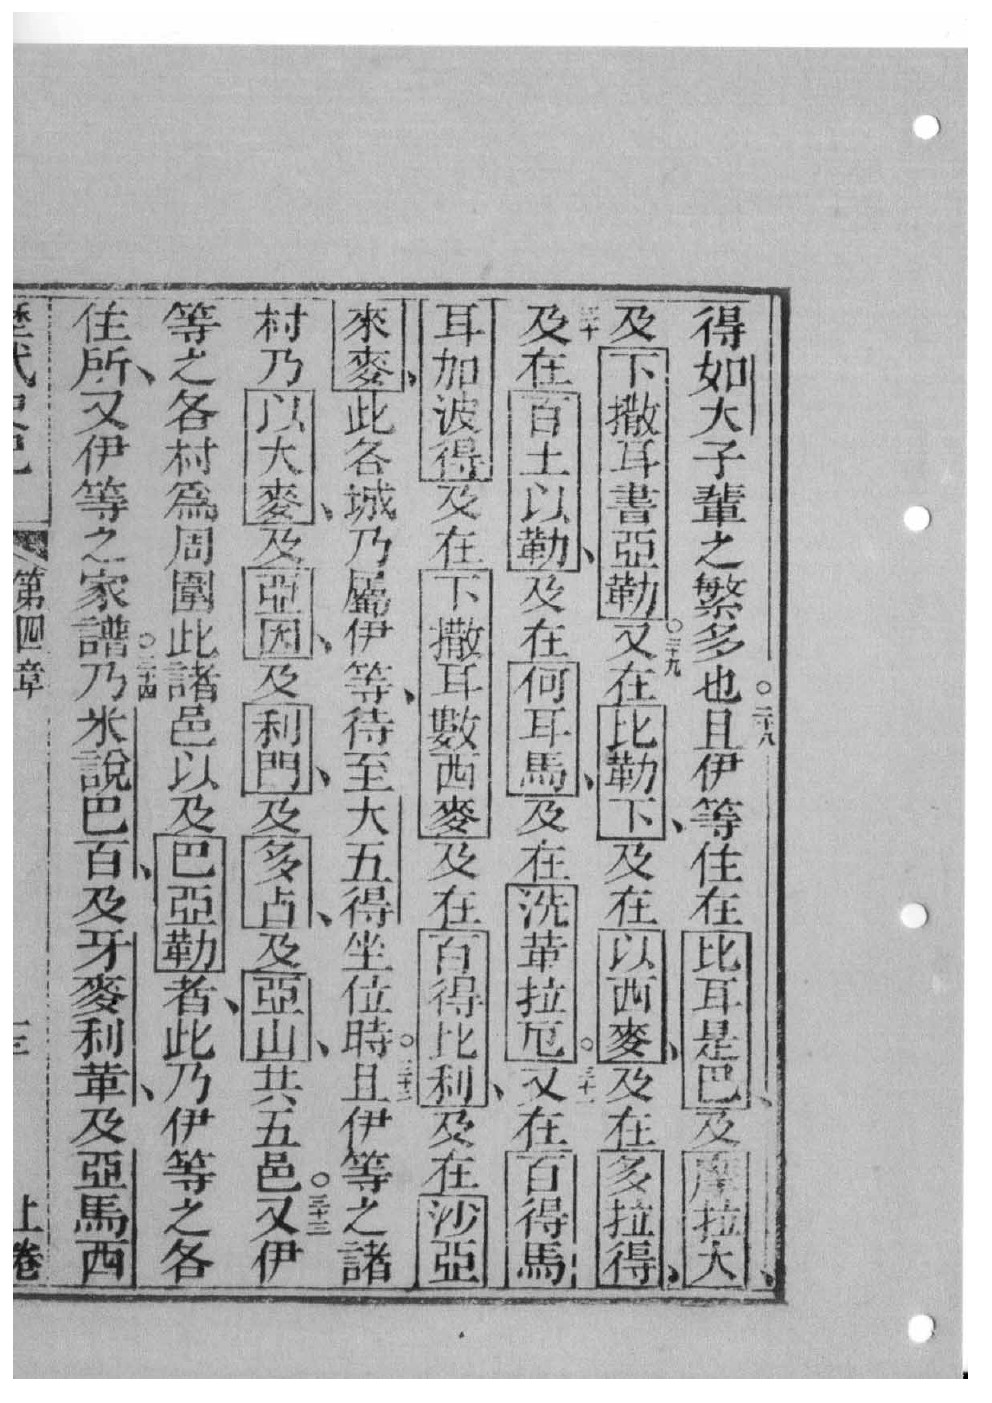 得如大子輩之繁多也○二十八且伊等住在比耳是巴、及摩拉大、
及下撒耳書亞勒○二十九又在比勒下、及在以西麥、及在多拉得、
三十及在百土以勒、及在何耳馬、及在洗革拉厄○三十一又在百得馬
耳加波得及在下撒耳數西麥及在百得比利、及在沙亞
來麥、此各城乃屬伊等、待至大五得坐位時○三十二且伊等之諸
村乃以大麥、及亞因、及利門、及多占、及亞山、共五邑○三十三又伊
等之各村為周圍此諸邑以及巴亞勒者、此乃伊等之各
住所、又伊等之家譜○三十四乃米說巴百、及牙麥利革、及亞馬西
歷代史記 第四章 上卷